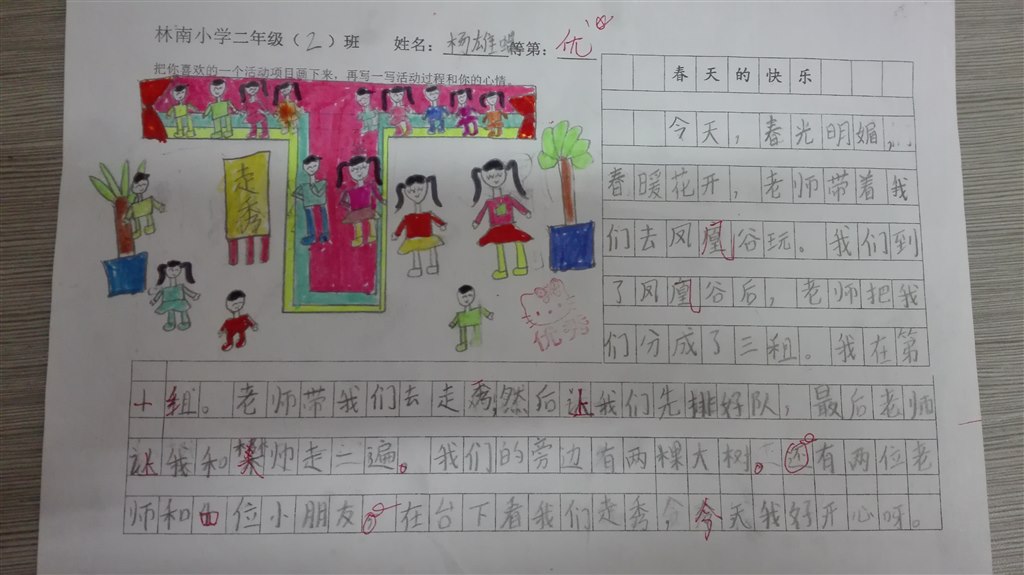 林南小学二年级(2)班 姓名:杨雄 等第:优
把你喜欢的一个活动项目画下来,再写一写活动过程和你的心情。
走秀
优秀
春天的快乐
今天,春光明媚,
春暖花开,老师带着我
们去凤凰谷玩。我们到
了凤凰谷后,老师把我
们分成了三组。我在第
十组。老师带我们去走秀,然后让我们先排好队,最后老师
让我和樊帅走二遍。我们的旁边有两棵大树。还有两位老
师和四位小朋友在台下看我们走秀,今天我好开心呀。